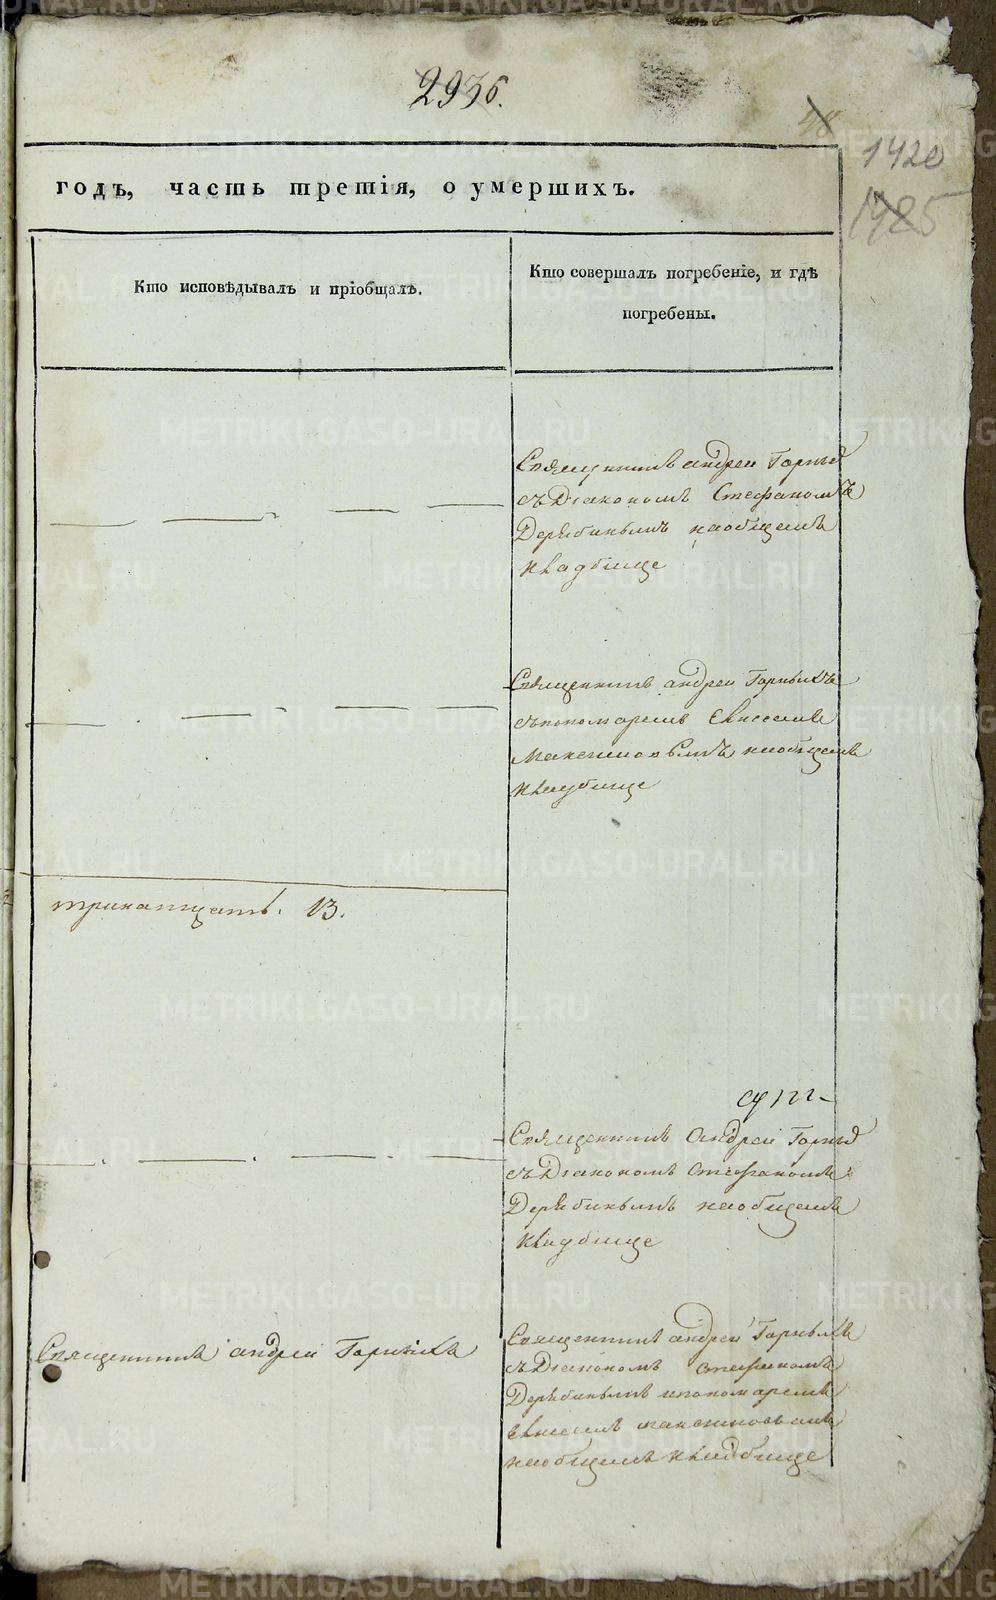 2936.
48
1420
1425
годъ, часть третія, о умершихъ.
Кто исповѣдывалъ и пріобщалъ.
Кто совершалъ погребеніе, и гдѣ
погребены.
Священникъ андреи Горныхъ
съ Дiакономъ Стефаномъ
Дерябинымъ на общемъ
Кладбище
Священникъ андреи Горныхъ
съ пономаремъ
Максимовымъ на общемъ
Кладбище
тринатцать. 13.
Священникъ Андреи Горныхъ
съ Дiакономъ Стефаномъ
Дерябинымъ на общемъ
Кладбище
Священникъ андреи Горныхъ
Священникъ андреи Горныхъ
съ Дiакономъ Стефаномъ
Дерябинымъ и пономаремъ
Максимовымъ
на общемъ Кладбище
METRIKI.GASO-URAL.RU